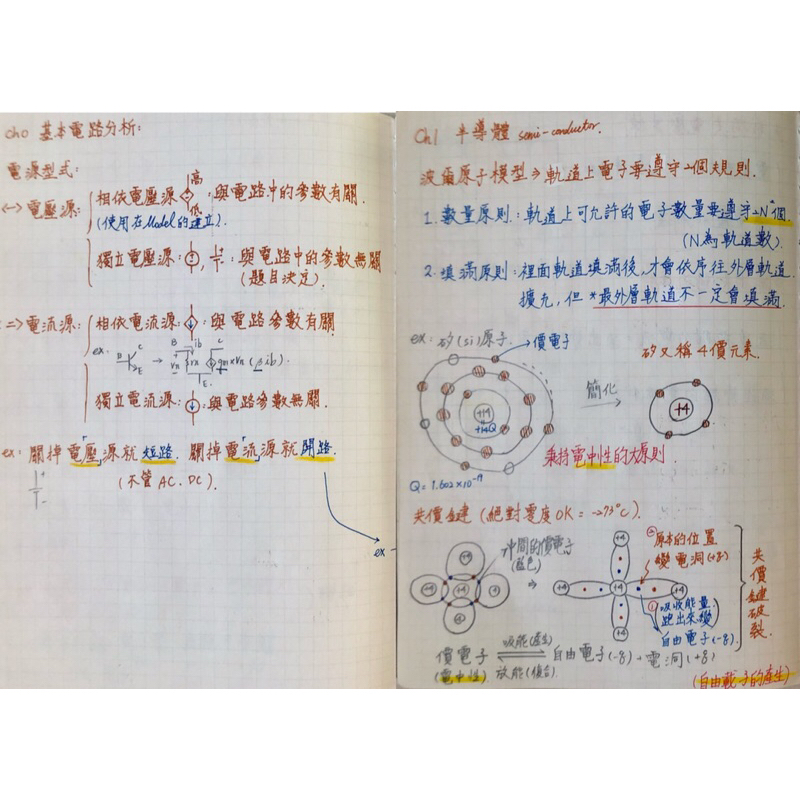 ch0 基本電路分析:
電源型式:
<一> 電壓源:
高
相依電壓源 : 與電路中的參數有關.
低
(使用在Model的建立)
獨立電壓源: , : 與電路中的參數無關
(題目決定).
<二> 電流源:
相依電流源 : 與電路參數有關.
ex:
B C E
B ib C
Vπ rπ gm×Vπ (βib).
E
獨立電流源: : 與電路參數無關.
ex: 關掉「電壓」源就短路. 關掉「電流」源就開路.
(不管 AC. DC).
ex
Ch1 半導體 semi-conductor.
波爾原子模型 ⇒ 軌道上電子要遵守2個規則.
1. 數量原則: 軌道上可允許的電子數量要遵守2N²個.
(N為軌道數).
2. 填滿原則: 裡面軌道填滿後, 才會依序往外層軌道
擴充, 但 *最外層軌道不一定會填滿.
ex: 矽(si)原子.
價電子
矽又稱4價元素.
+14
+14Q
簡化
+4
秉持電中性的大原則.
Q = 1.602×10⁻¹⁹
共價鍵 (絕對零度 0K = -273°C).
中間的價電子
(藍色)
+4 +4 +4 +4 +4
⇒
+4 +4 +4 +4 +4
② 原本的位置
變電洞(+q)
① 吸收能量
跑出來變
自由電子(-q).
共價鍵破裂.
價電子 吸能(產生) 自由電子(-q) + 電洞(+q)
(電中性). 放能(復合).
(自由載子的產生)